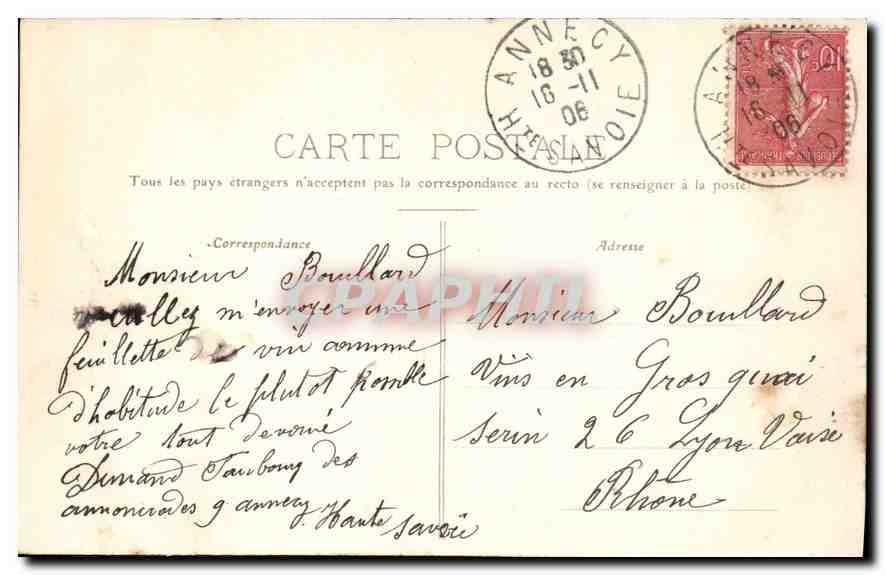 ANNECY
18 30
16 -11
06
Hte SAVOIE
ANNECY
18
16 11
06
SAVOIE
10
CARTE POSTALE
Tous les pays étrangers n'acceptent pas la correspondance au recto (se renseigner à la poste)
Correspondance
Monsieur Bouillard
veuillez m'envoyer une
feuillette de vin comme
d'habitude le plutot possible
votre tout devoué
Dunand Faubourg des
annonciades 9 annecy
Haute Savoie
Adresse
Monsieur Bouillard
Vins en Gros quai
Serin 26 Lyon Vaise
Rhône
CPAPHIL